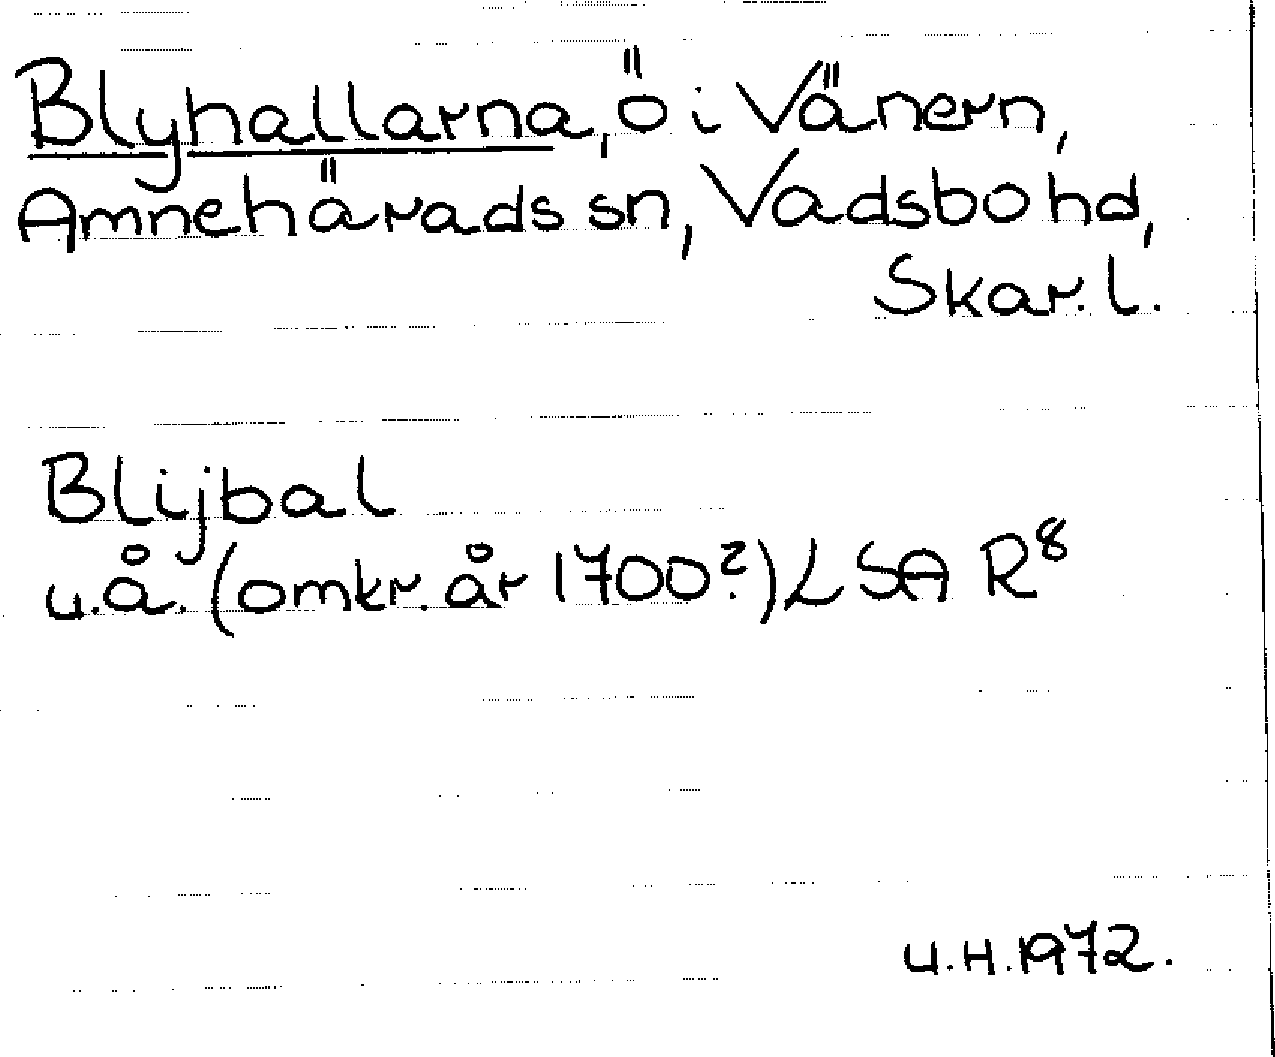 Blyhallarna, ö i Vänern,
Amnehärads sn, Vadsbo hd,
Skar. l.
Blijbal
u.å. (omkr. år 1700?) LSA R⁸
U.H. 1972.